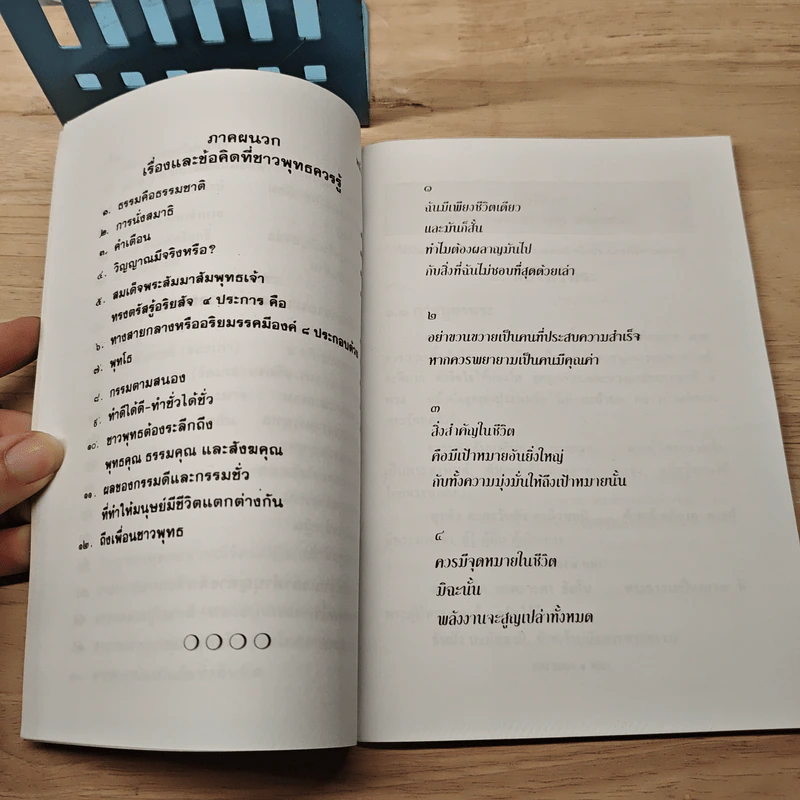 ภาคผนวก
เรื่องและข้อคิดที่ชาวพุทธควรรู้
๑. ธรรมคือธรรมชาติ
๒. การนั่งสมาธิ
๓. คำเตือน
๔. วิญญาณมีจริงหรือ?
๕. สมเด็จพระสัมมาสัมพุทธเจ้า
ทรงตรัสรู้อริยสัจ ๔ ประการ คือ
๖. ทางสายกลางหรืออริยมรรคมีองค์ ๘ ประกอบด้วย
๗. พุทโธ
๘. กรรมตามสนอง
๙. ทำดีได้ดี-ทำชั่วได้ชั่ว
๑๐. ชาวพุทธต้องระลึกถึง
พุทธคุณ ธรรมคุณ และสังฆคุณ
๑๑. ผลของกรรมดีและกรรมชั่ว
ที่ทำให้มนุษย์มีชีวิตแตกต่างกัน
๑๒. ถึงเพื่อนชาวพุทธ
๑
ฉันมีเพียงชีวิตเดียว
และมันก็สั้น
ทำไมต้องผลาญมันไป
กับสิ่งที่ฉันไม่ชอบที่สุดด้วยเล่า
๒
อย่าขวนขวายเป็นคนที่ประสบความสำเร็จ
หากควรพยายามเป็นคนมีคุณค่า
๓
สิ่งสำคัญในชีวิต
คือมีเป้าหมายอันยิ่งใหญ่
กับทั้งความมุ่งมั่นให้ถึงเป้าหมายนั้น
๔
ควรมีจุดหมายในชีวิต
มิฉะนั้น
พลังงานจะสูญเปล่าทั้งหมด